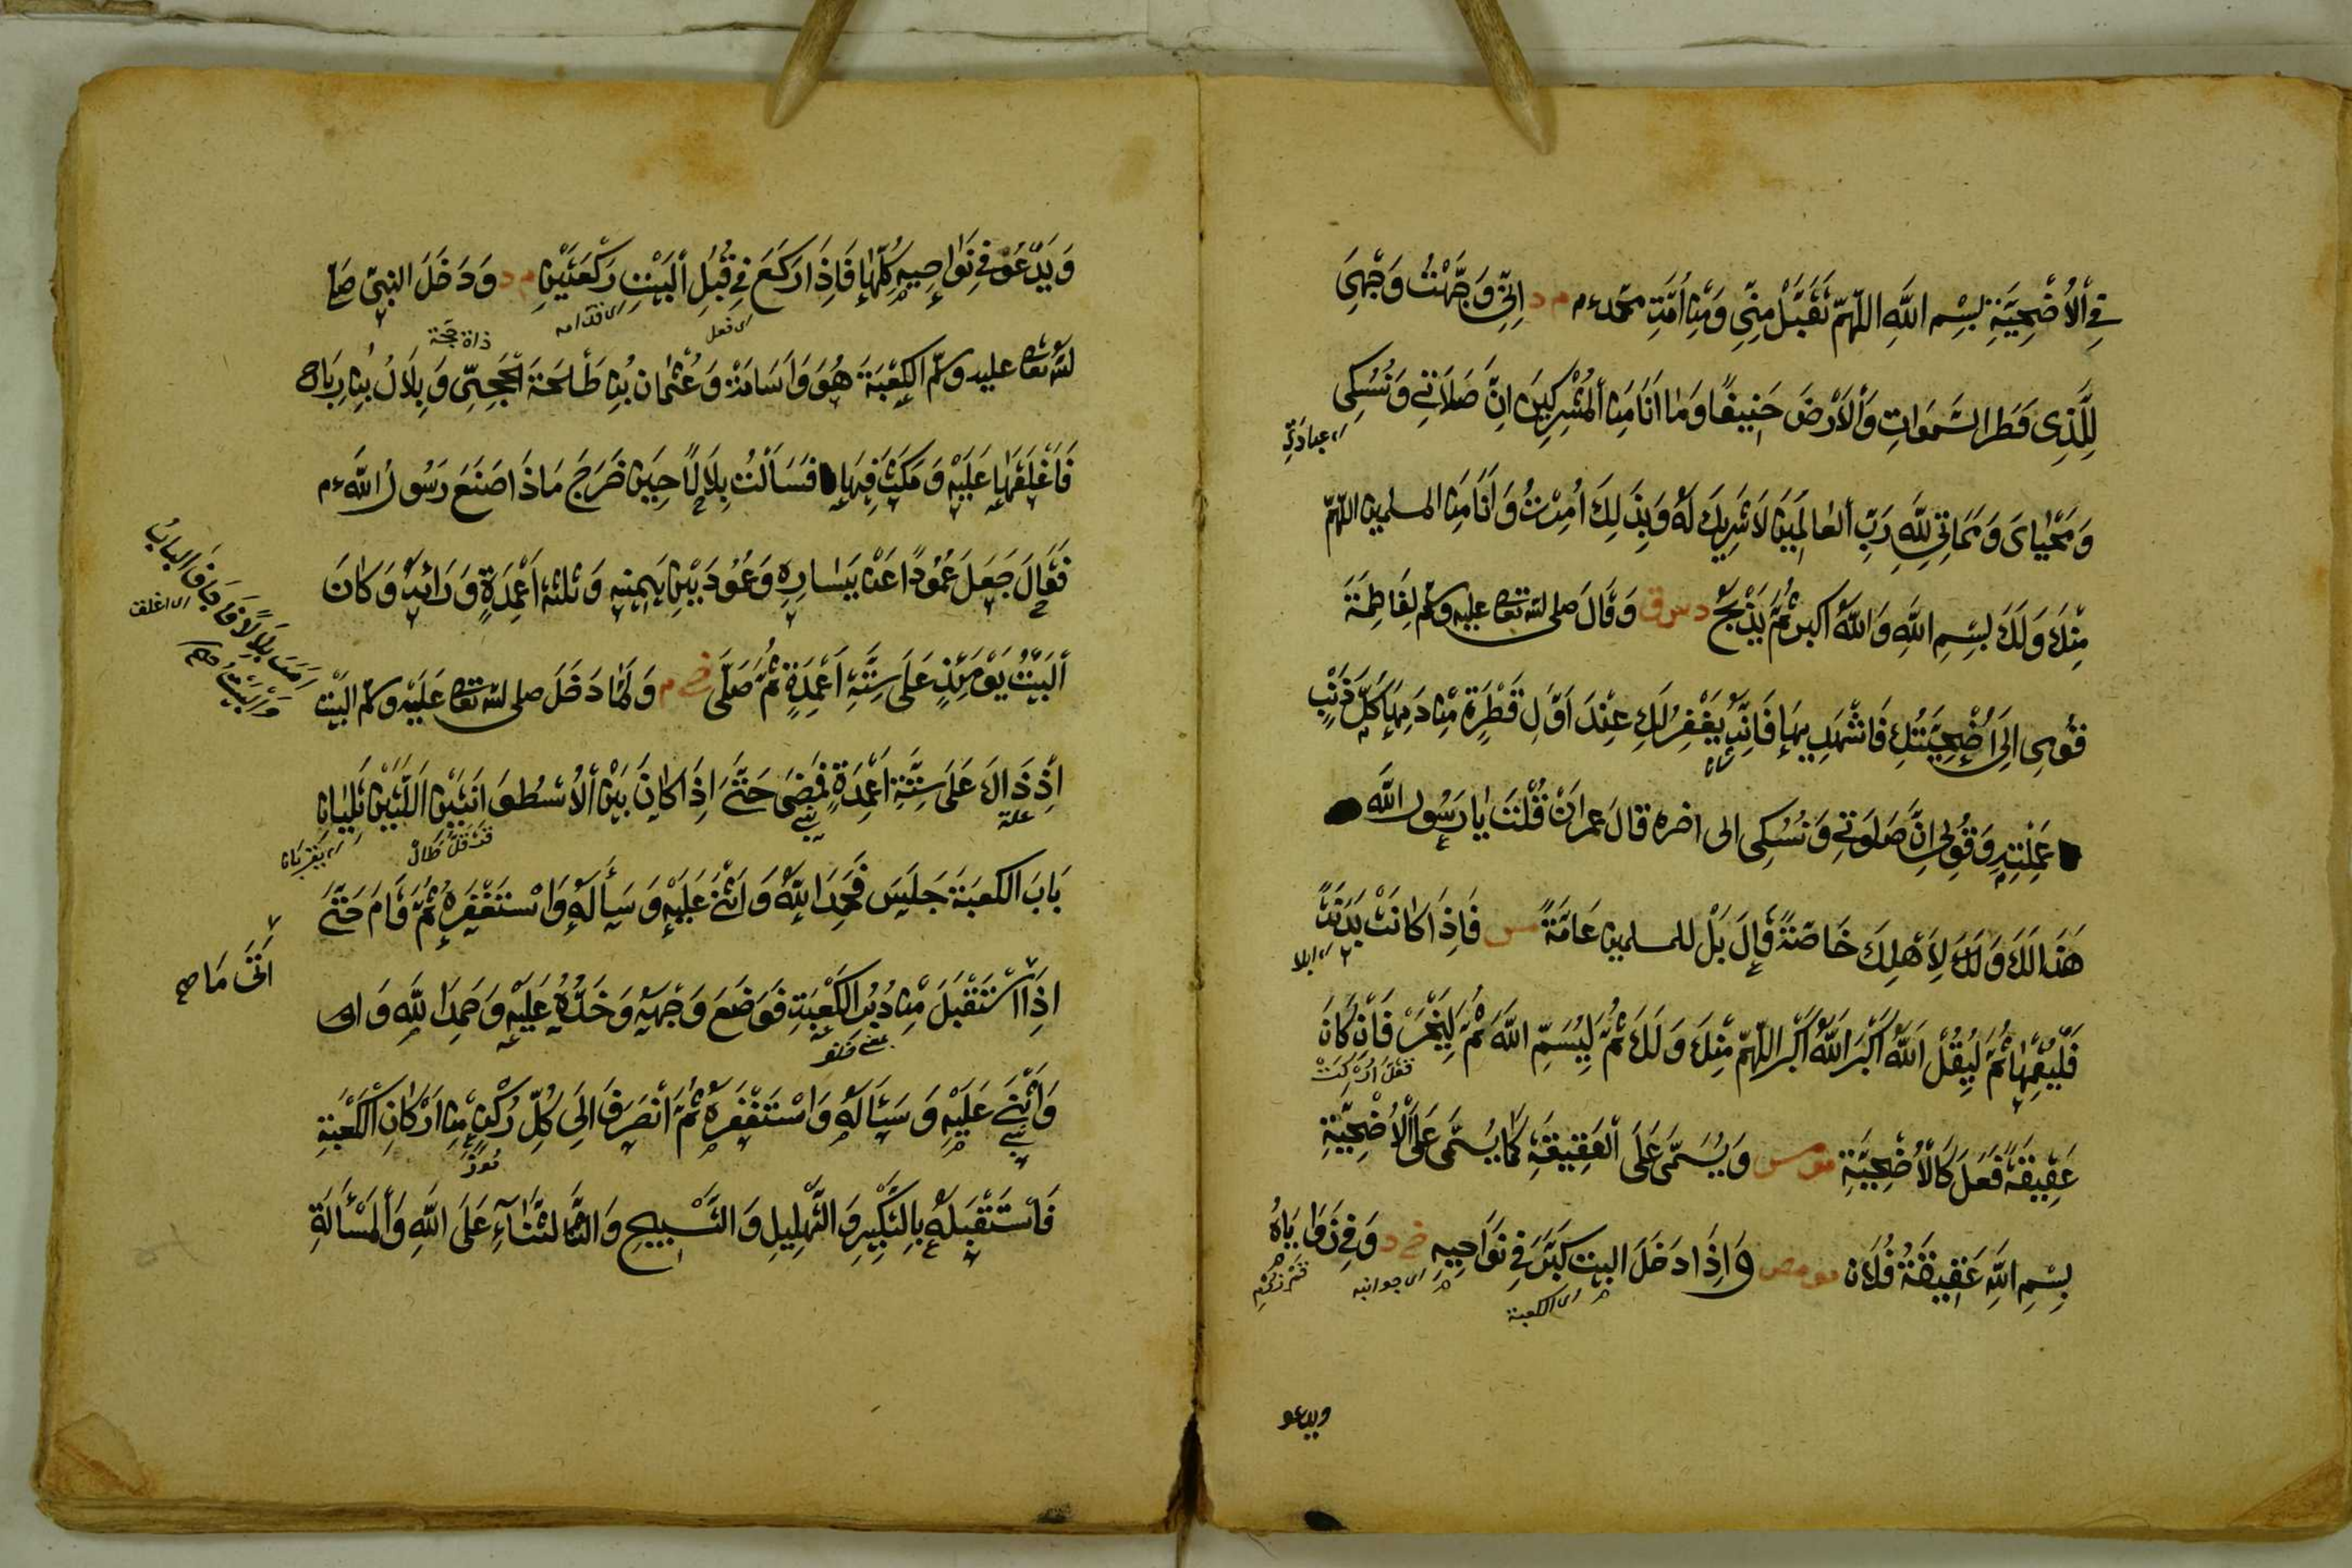 في ألأُضْحِيَّةِ بِسْمِ اللَّهِ اللّهمّ تَقَبَّلْ مِنِّي وَمِنْ أُمَّةِ محمّد ءم م د اِنِّي وَجَّهْتُ وَجْهِيَ
لِلَّذِي فَطَرَ السَّمَوَاتِ وَألأَرْضَ حَنِيفًا وَمَا اَنَا مِنَ ألْمُشْرِكِينَ اِنَّ صَلَاتِي وَنُسُكِي
اى عبادتى
وَمَحْيَايَ وَمَمَاتِي لِلَّهِ رَبِّ ألعَالَمِينَ لَا شَرِيكَ لَهُ وَبِذَلِكَ اُمِرْتُ وَاَنَا مِنَ المسلمين اللّهمّ
مِنْكَ وَلَكَ بِسْمِ اللَّهِ وَاللَّهُ اكبر ثُمَّ يَذْبَحُ د س ق وَقَالَ صلى الله تعا عليه وسلم لِفَاطِمَةَ
قُومِي اِلَى أُضْحِيَّتِكِ فَاشْهَدِيهَا فَاِنَّهُ يُغْفَرُ لَكِ عِنْدَ اَوَّلِ قَطْرَةٍ مِنْ دَمِهَا كُلُّ ذَنْبٍ
عَمِلْتِيهِ وَقُولِي اِنَّ صَلَوتِي وَنُسُكِي الى اخره قال عمران قُلْتُ يَا رَسُولَ اللَّه
هَذَا لَكَ وَلِأَهْلِكَ خَاصَّةً قَالَ بَلْ للمسلمين عَامَّةً مس فَاِذَا كَانَتْ بَدَنَةً
اى ابلا
فَلْيُقِمْهَا ثُمَّ لِيَقُلْ اَللَّهُ اَكْبَرُ اَللَّهُ اَكْبَرُ اللّهمّ مِنْكَ وَلَكَ ثُمَّ لِيُسَمِّ اللَّهَ ثُمَّ لِيَنْحَرْ فَاِنْ كَانَ
عَقِيقَةً فَعَلَ كَالْأُضْحِيَّةِ مو مس وَيُسَمِّي عَلَى ألْعَقِيقَةِ كَمَا يُسَمِّي عَلَى ألأُضْحِيَّةِ
بِسْمِ اللَّهِ عَقِيقَةُ فُلَان مو مص وَاِذَا دَخَلَ البيت كَبَّرَ فِي نَوَاحِيهِ خ د وَفِي زَوَايَاهُ
اى جوانبه
اى الكعبة
ويدعو
وَيَدْعُو فِي نَوَاحِيهِ كُلِّهَا فَاِذَا رَكَعَ فِي قُبُلِ ألبَيْتِ رَكْعَتَيْنِ م د وَدَخَلَ النبيّ صَلَّى
اى قدامه
اى فعل
الله تعا عليه وسلّم الكَعْبَةَ هُوَ وَاُسَامَةُ وَعُثْمَان بْنُ طَلْحَةَ الْحَجَبِيّ وَبِلَالُ بْنُ رِبَاح
فَأَغْلَقَهَا عَلَيْهِ وَمَكَثَ فِيهَا فَسَأَلْتُ بِلَالًا حِينَ خَرَجَ مَاذَا صَنَعَ رَسُولُ اللَّه ءم
فَقَالَ جَعَلَ عَمُودًا عَنْ يَسَارِهِ وَعَمُودَيْنِ يَمِينِهِ وَثَلَثَةَ اَعْمِدَةٍ وَرَائَهُ وَكَانَ
ألبَيْتُ يَوْمَئِذٍ عَلَى سِتَّةِ اَعْمِدَةٍ ثُمَّ صَلَّى خ م وَلَمَّا دَخَلَ صلى الله تعا عَلَيْهِ وسلّم البَيْت
اَمَرَ بِلَالًا فَأَجَافَ الباب
اى اغلق
اِذْ ذَاكَ عَلَى سِتَّةِ اَعْمِدَةٍ فَمَضَى حَتَّى اِذَا كَانَ بَيْنَ ألأُسْطُوَانَتَيْنِ اَللَّتَيْنِ تَلِيَانِ
بَابَ الكعبَة جَلَسَ فَحَمِدَ اللَّهَ وَاَثْنَى عَلَيْهِ وَسَأَلَهُ وَاسْتَغْفَرَهُ ثُمَّ قَامَ حَتَّى
اَتَى مَا صح
اِذَا اسْتَقْبَلَ مِنْ دُبُرِ الكَعْبَةِ فَوَضَعَ وَجْهَهُ وَخَدَّهُ عَلَيْهِ وَحَمِدَ اللَّهَ وَا
وَاَثْنَى عَلَيْهِ وَسَأَلَهُ وَاسْتَغْفَرَهُ ثُمَّ اَنْصَرَفَ اِلَى كُلِّ رُكْنٍ مِنْ اَرْكَانِ الكَعْبَةِ
فَاسْتَقْبَلَهُ بِالتَّكْبِيرِ وَالتَّهْلِيلِ وَالتَّسْبِيحِ وَالثَّنَاءِ عَلَى اللَّهِ وَألمَسْأَلَةِ